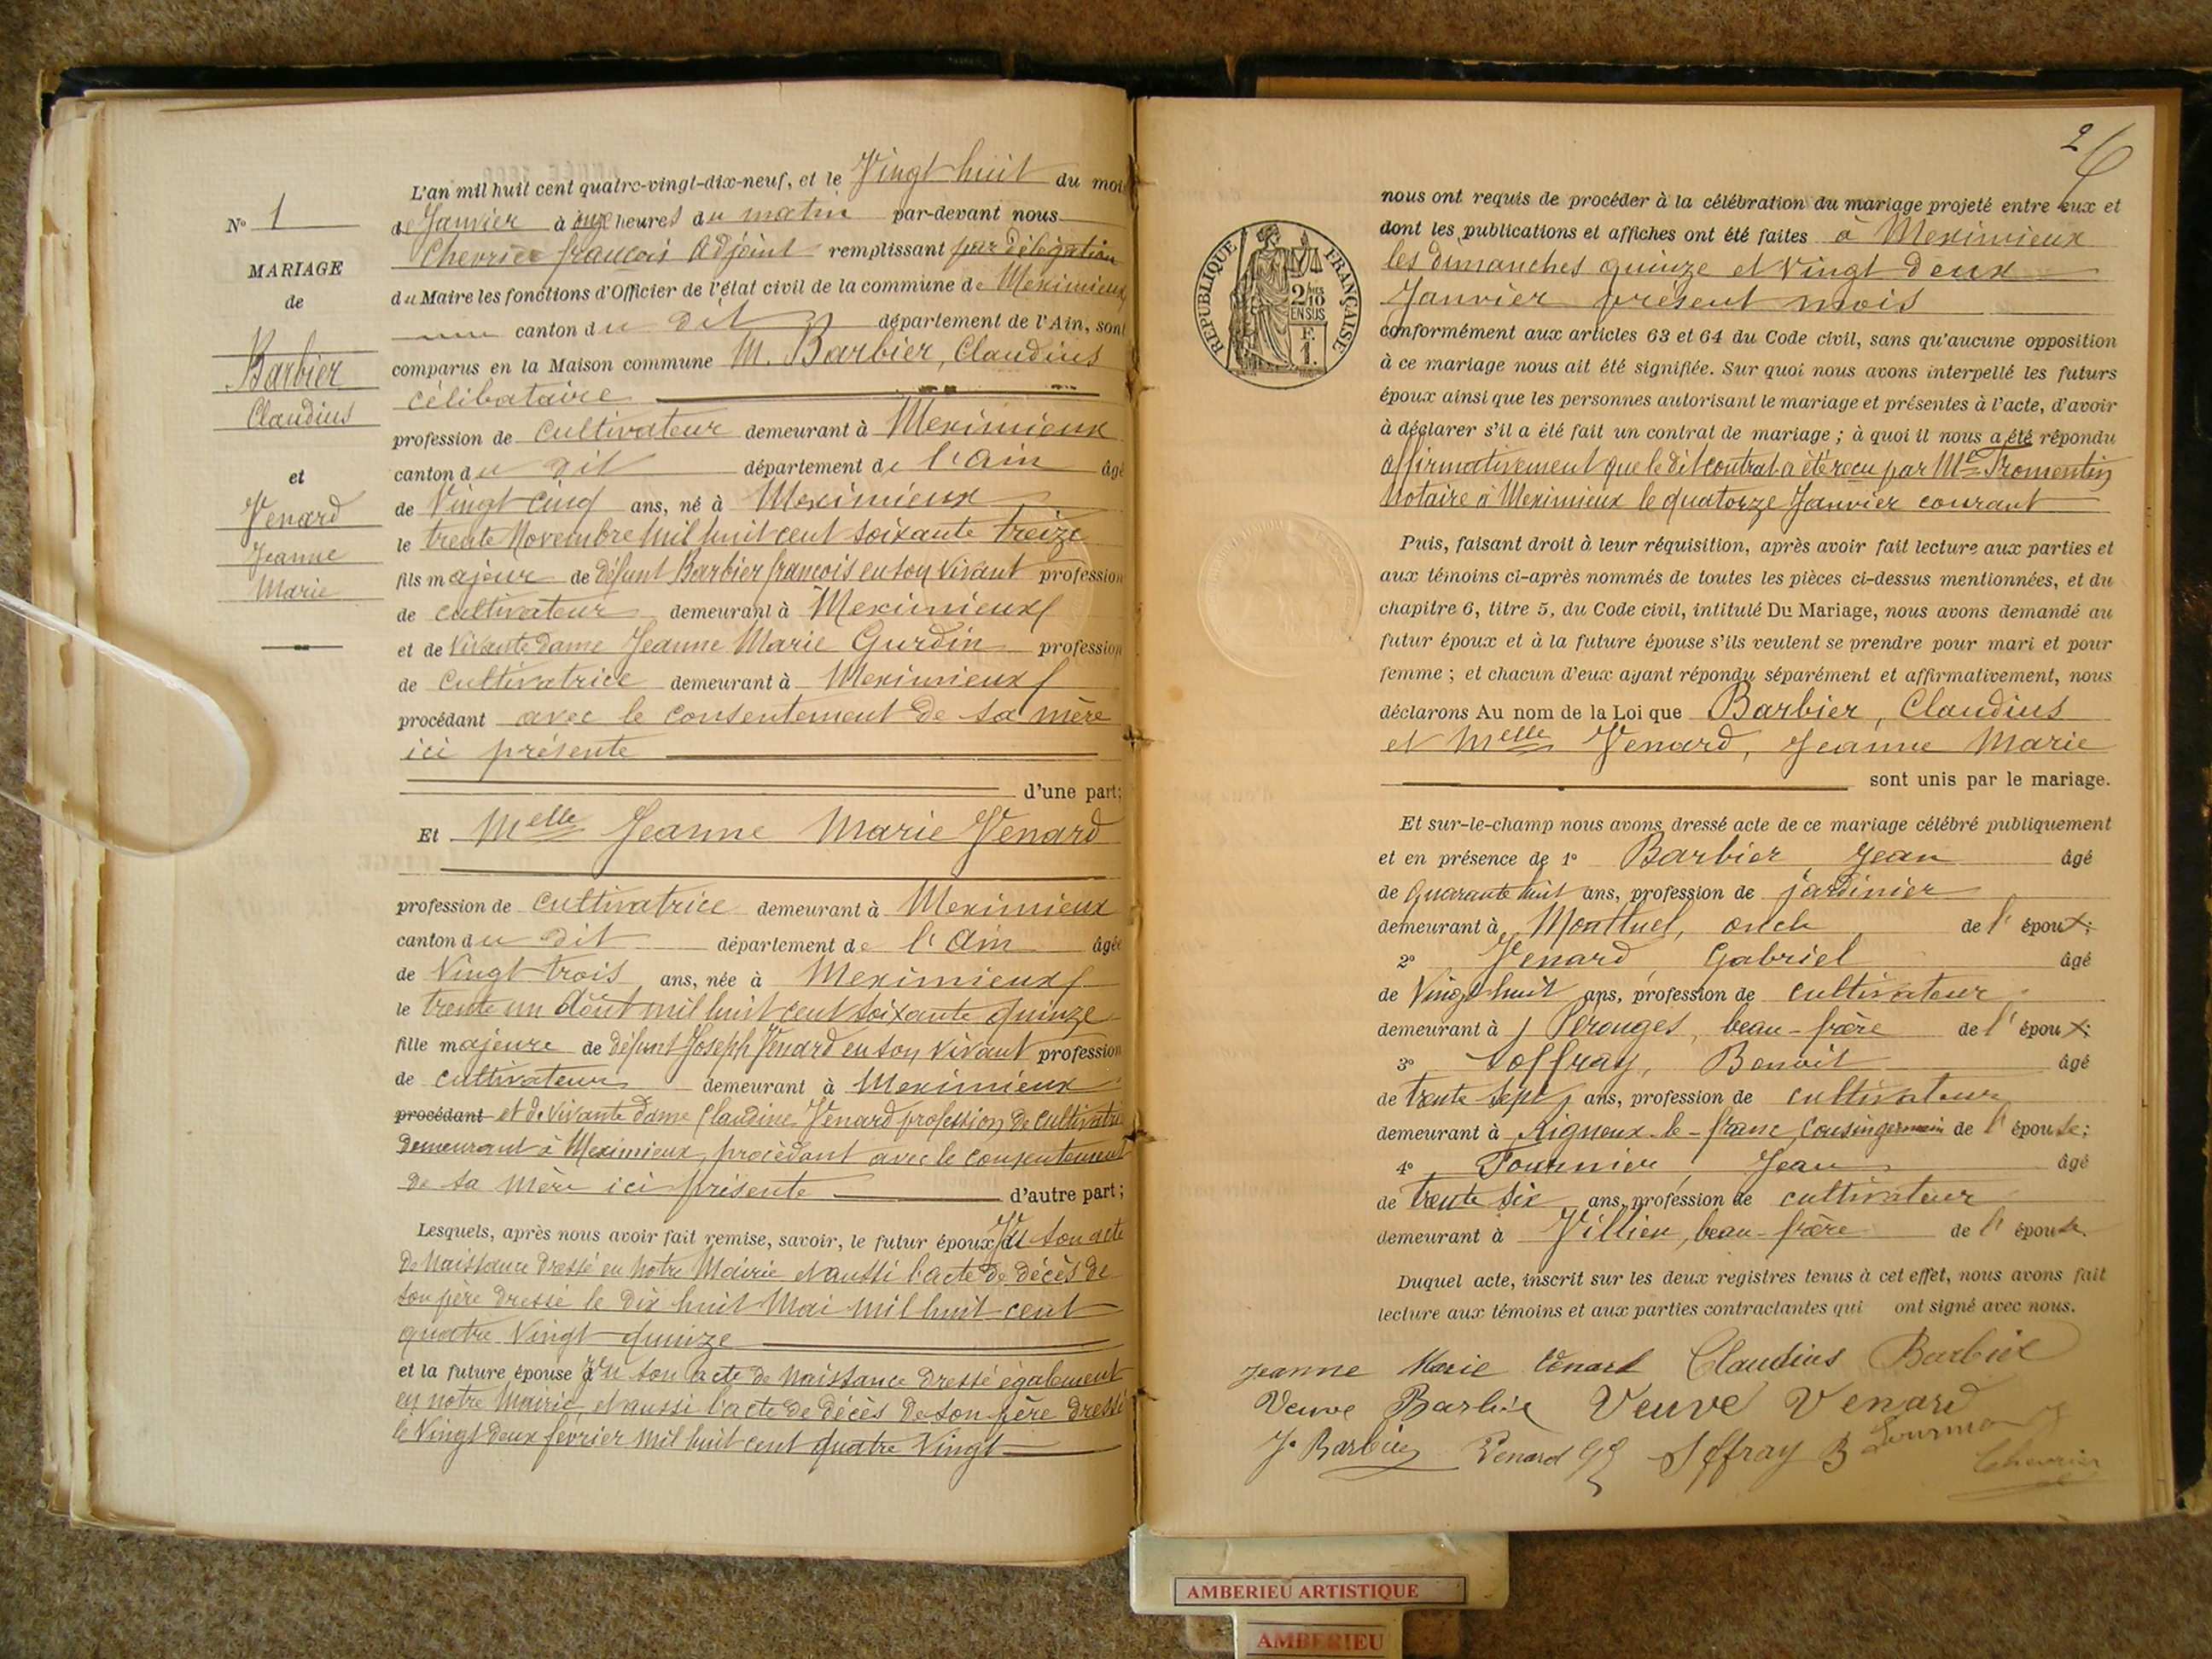 L'an mil huit cent quatre-vingt-dix-neuf, et le Vingt huit du moi
de Janvier à onze heures du matin par-devant nous
Chevrier françois Adjoint remplissant par délégation
du Maire les fonctions d'Officier de l'état civil de la commune de Meximieux
canton du dit département de l'Ain, sont
comparus en la Maison commune M. Barbier, Claudius
célibataire
profession de Cultivateur demeurant à Meximieux
canton du dit département de l'Ain âgé
de Vingt cinq ans, né à Meximieux
le trente Novembre mil huit cent soixante treize
fils majeur de défunt Barbier françois en son vivant profession
de cultivateur demeurant à Meximieux
et de vivante Dame Jeanne Marie Gurdin profession
de Cultivatrice demeurant à Meximieux
procédant avec le consentement de sa mère
ici présente
d'une part;
Et Melle Jeanne Marie Venard
profession de Cultivatrice demeurant à Meximieux
canton du dit département de l'Ain âgée
de Vingt trois ans, née à Meximieux
le trente un Août mil huit cent soixante quinze
fille majeure de défunt Joseph Venard en son vivant profession
de cultivateur demeurant à Meximieux
procédant et de vivante dame Claudine Venard profession de Cultivatri
demeurant à Meximieux, procédant avec le consentement
de sa mère ici présente d'autre part;
Lesquels, après nous avoir fait remise, savoir, le futur époux, Vu son acte
de Naissance dressé en notre Mairie et aussi l'acte de décès de
son père dressé le dix huit Mai mil huit cent
quatre vingt quinze
et la future épouse Vu son acte de Naissance dressé également
en notre Mairie, et aussi l'acte de décès de son père dressé
le Vingt deux février mil huit cent quatre Vingt
N° 1
MARIAGE
de
Barbier
Claudius
et
Venard
Jeanne
Marie
2
nous ont requis de procéder à la célébration du mariage projeté entre eux et
dont les publications et affiches ont été faites à Meximieux
les dimanches quinze et vingt deux
Janvier présent mois
conformément aux articles 63 et 64 du Code civil, sans qu'aucune opposition
à ce mariage nous ait été signifiée. Sur quoi nous avons interpellé les futurs
époux ainsi que les personnes autorisant le mariage et présentes à l'acte, d'avoir
à déclarer s'il a été fait un contrat de mariage; à quoi il nous a été répondu
affirmativement que le dit contrat a été reçu par Me Fromentin
Notaire à Meximieux le quatorze Janvier courant
Puis, faisant droit à leur réquisition, après avoir fait lecture aux parties et
aux témoins ci-après nommés de toutes les pièces ci-dessus mentionnées, et du
chapitre 6, titre 5, du Code civil, intitulé Du Mariage, nous avons demandé au
futur époux et à la future épouse s'ils veulent se prendre pour mari et pour
femme; et chacun d'eux ayant répondu séparément et affirmativement, nous
déclarons Au nom de la Loi que Barbier, Claudius
et Melle Venard, Jeanne Marie
sont unis par le mariage.
Et sur-le-champ nous avons dressé acte de ce mariage célébré publiquement
et en présence de 1° Barbier Jean âgé
de Quarante huit ans, profession de jardinier
demeurant à Montluel, oncle de l'époux;
2° Venard Gabriel âgé
de Vingt huit ans, profession de cultivateur
demeurant à Pérouges, beau-frère de l'époux;
3° Joffray, Benoit âgé
de trente sept ans, profession de cultivateur
demeurant à Rigneux-le-franc Cousin germain de l'épouse;
4° Fournier, Jean âgé
de trente six ans, profession de cultivateur
demeurant à Villieu, beau-frère de l'épouse.
Duquel acte, inscrit sur les deux registres tenus à cet effet, nous avons fait
lecture aux témoins et aux parties contractantes qui ont signé avec nous.
Jeanne Marie Venard Claudius Barbier
Veuve Barbier Veuve Venard
J. Barbier Venard Joffray B Fournier
Chevrier
RÉPUBLIQUE FRANÇAISE
2/10
EN SUS
F.
1.
AMBERIEU ARTISTIQUE
AMBERIEU